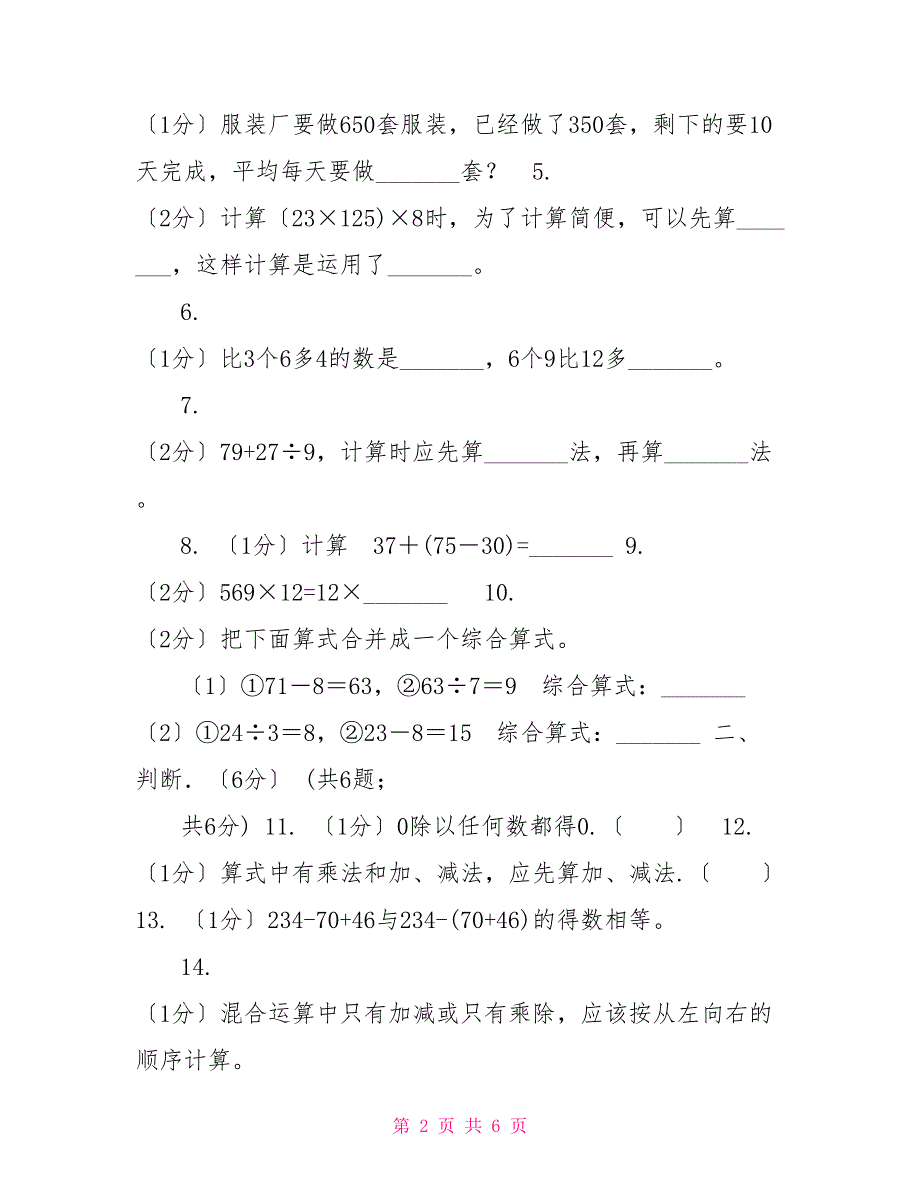 〔1分〕服装厂要做650套服装，已经做了350套，剩下的要10
天完成，平均每天要做_______套？ 5.
〔2分〕计算〔23×125)×8时，为了计算简便，可以先算____
___，这样计算是运用了_______。
6.
〔1分〕比3个6多4的数是_______，6个9比12多_______。
7.
〔2分〕79+27÷9，计算时应先算_______法，再算_______法
。
8. 〔1分〕计算 37＋(75－30)=_______ 9.
〔2分〕569×12=12×_______ 10.
〔2分〕把下面算式合并成一个综合算式。
〔1〕①71－8＝63，②63÷7＝9 综合算式：_______
〔2〕①24÷3＝8，②23－8＝15 综合算式：_______ 二、
判断．〔6分〕 (共6题；
共6分) 11. 〔1分〕0除以任何数都得0.〔 〕 12.
〔1分〕算式中有乘法和加、减法，应先算加、减法.〔 〕
13. 〔1分〕234-70+46与234-(70+46)的得数相等。
14.
〔1分〕混合运算中只有加减或只有乘除，应该按从左向右的
顺序计算。
第 2 页 共 6 页